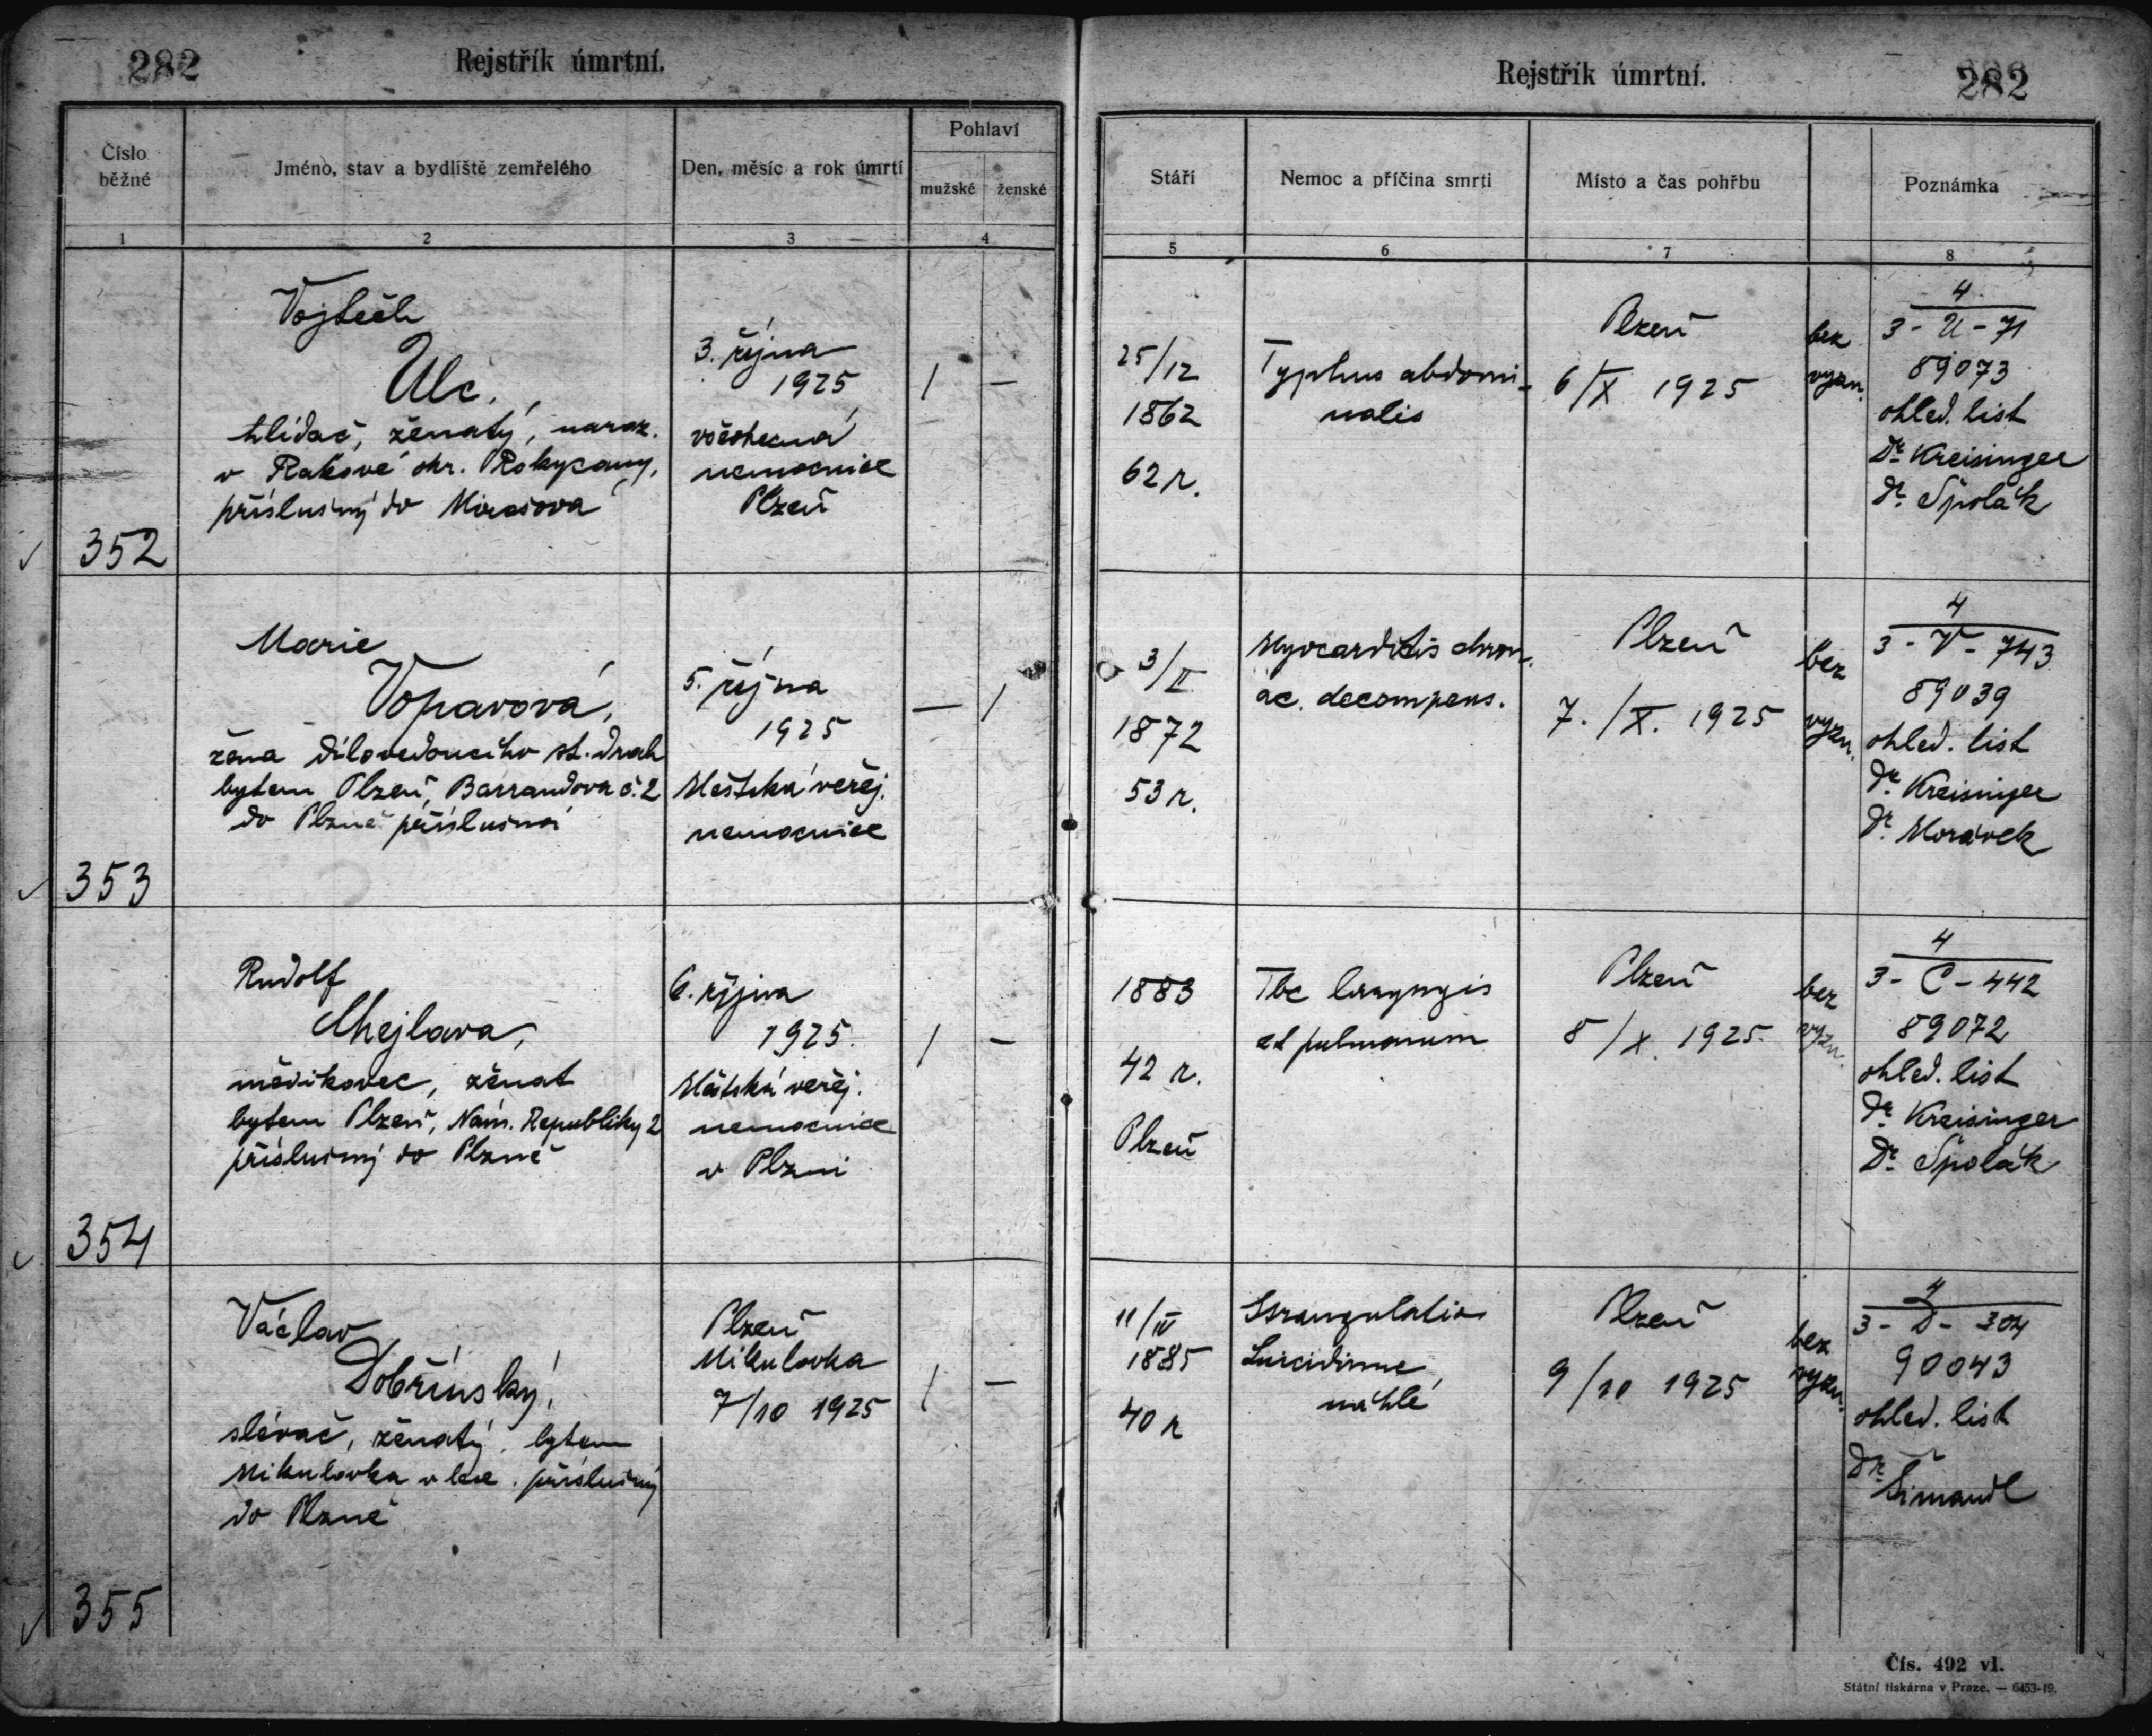 282
Rejstřík úmrtní.
Číslo běžné
Jméno, stav a bydliště zemřelého
Den, měsíc a rok úmrtí
Pohlaví
mužské
ženské
1
2
3
4
Vojtěch
Ulč.
hlídač, ženatý, naroz.
v Rakové okr. Rokycany,
příslušný do Mirošova
3. října
1925
všeobecná
nemocnice
Plzeň
/
—
352
Marie
Voparová,
žena dílovedoucího st. drah
bytem Plzeň, Barrandova č. 2
do Plzně příslušná
5. října
1925
Městská veřej.
nemocnice
—
/
353
Rudolf
Chejlava,
měďikovec, ženat
bytem Plzeň, Nám. Republiky 2
příslušný do Plzně
6. října
1925.
Městská veřej.
nemocnice
v Plzni
/
—
354
Václav
Dobřínský,
slévač, ženatý, bytem
Mikulovka v lese, příslušný
do Plzně
Plzeň
Mikulovka
7/10 1925
/
—
355
Rejstřík úmrtní.
282
Stáří
Nemoc a příčina smrti
Místo a čas pohřbu
Poznámka
5
6
7
8
25/12
1862
62 r.
Typhus abdomi-
nalis
Plzeň
6/X 1925
bez
vyzn.
4
3 - U - 71
89073
ohled. list
Dr. Kreisinger
Dr. Špolák
3/II
1872
53 r.
Myocarditis chron.
ac. decompens.
Plzeň
7./X. 1925
bez
vyzn.
4
3 - V - 743
89039
ohled. list
Dr. Kreisinger
Dr. Morávek
1883
42 r.
Plzeň
Tbc laryngis
et pulmonum
Plzeň
8/X. 1925.
bez
vyzn.
4
3 - C - 442
89072
ohled. list
Dr. Kreisinger
Dr. Špolák
11/IV
1885
40 r
Strangulatio
Suicidium
náhlé
Plzeň
9/10 1925
bez
vyzn.
4
3 - D - 304
90043
ohled. list
Dr.
Šimandl
Čís. 492 vl.
Státní tiskárna v Praze. — 6453-19.